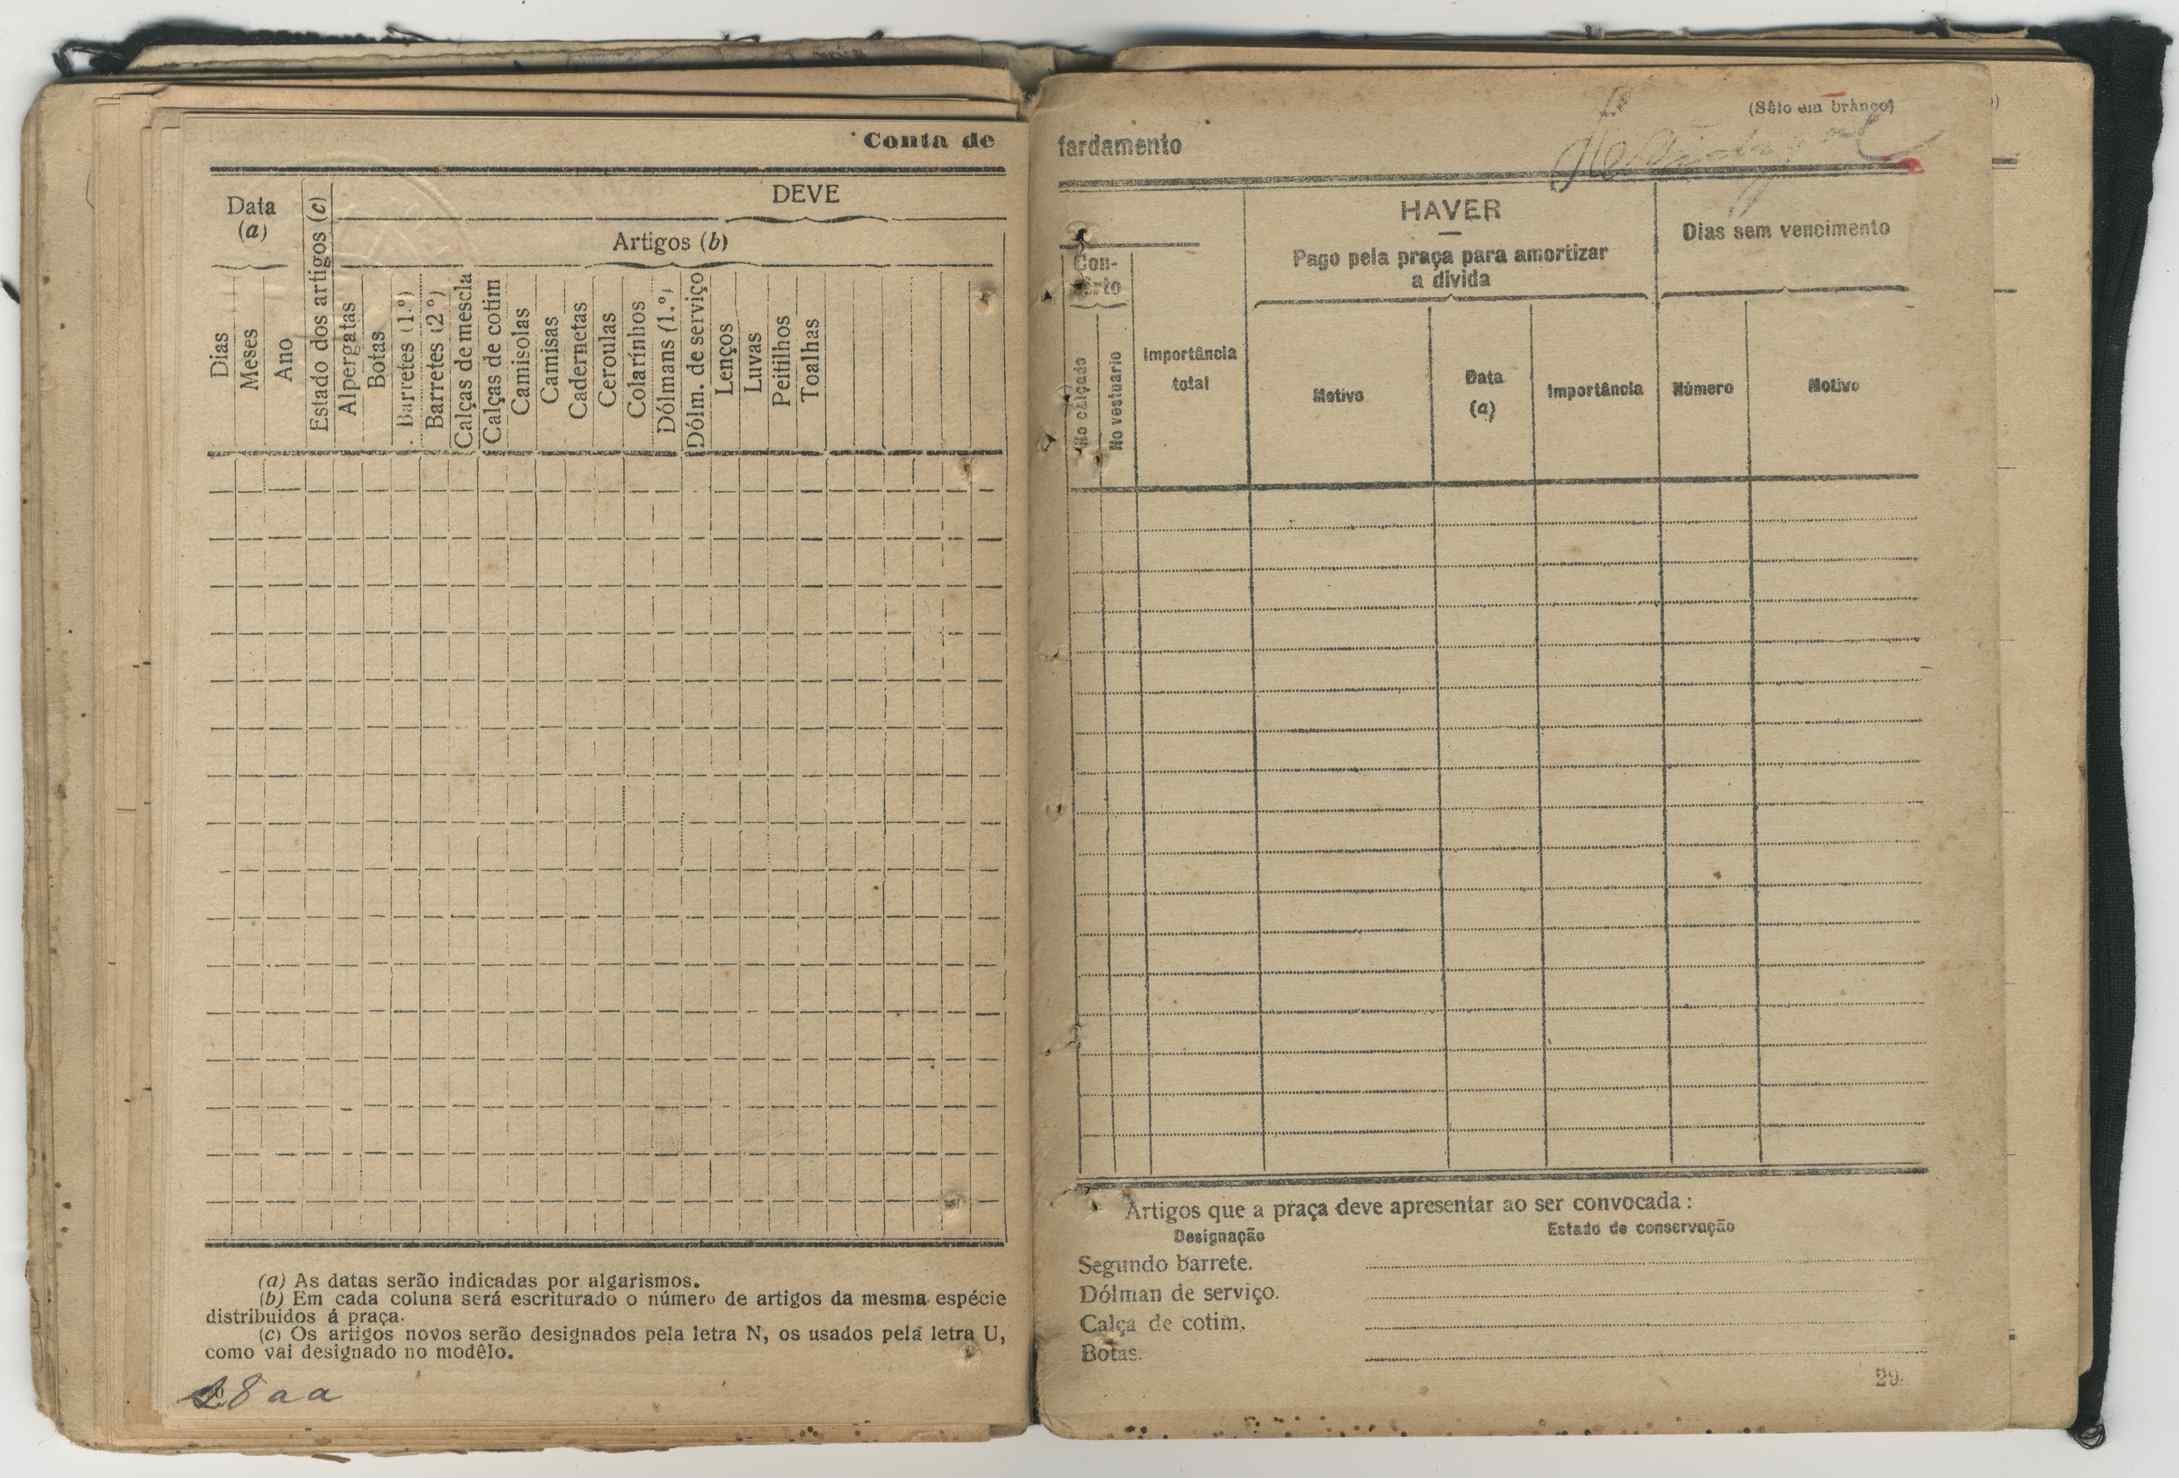 Conta de
DEVE
Data
(a)
Artigos (b)
Dias
Meses
Ano
Estado dos artigos (c)
Alpergatas
Botas
Barretes (1.º)
Barretes (2.º)
Calças de mescla
Calças de cotim
Camisolas
Camisas
Cadernetas
Ceroulas
Colarínhos
Dólmans (1.º)
Dólm. de serviço
Lenços
Luvas
Peitilhos
Toalhas
(a) As datas serão indicadas por algarismos.
(b) Em cada coluna será escriturado o número de artigos da mesma espécie
distribuidos á praça.
(c) Os artigos novos serão designados pela letra N, os usados pela letra U,
como vai designado no modêlo.
28 a a
(Sêlo em branco)
fardamento
HAVER
Pago pela praça para amortizar
a divida
Dias sem vencimento
Con-
serto
No calçado
No vestuário
Importância
total
Motivo
Data
(a)
Importância
Número
Motivo
Artigos que a praça deve apresentar ao ser convocada :
Designação
Estado de conservação
Segundo barrete.
Dólman de serviço.
Calça de cotim.
Botas.
29